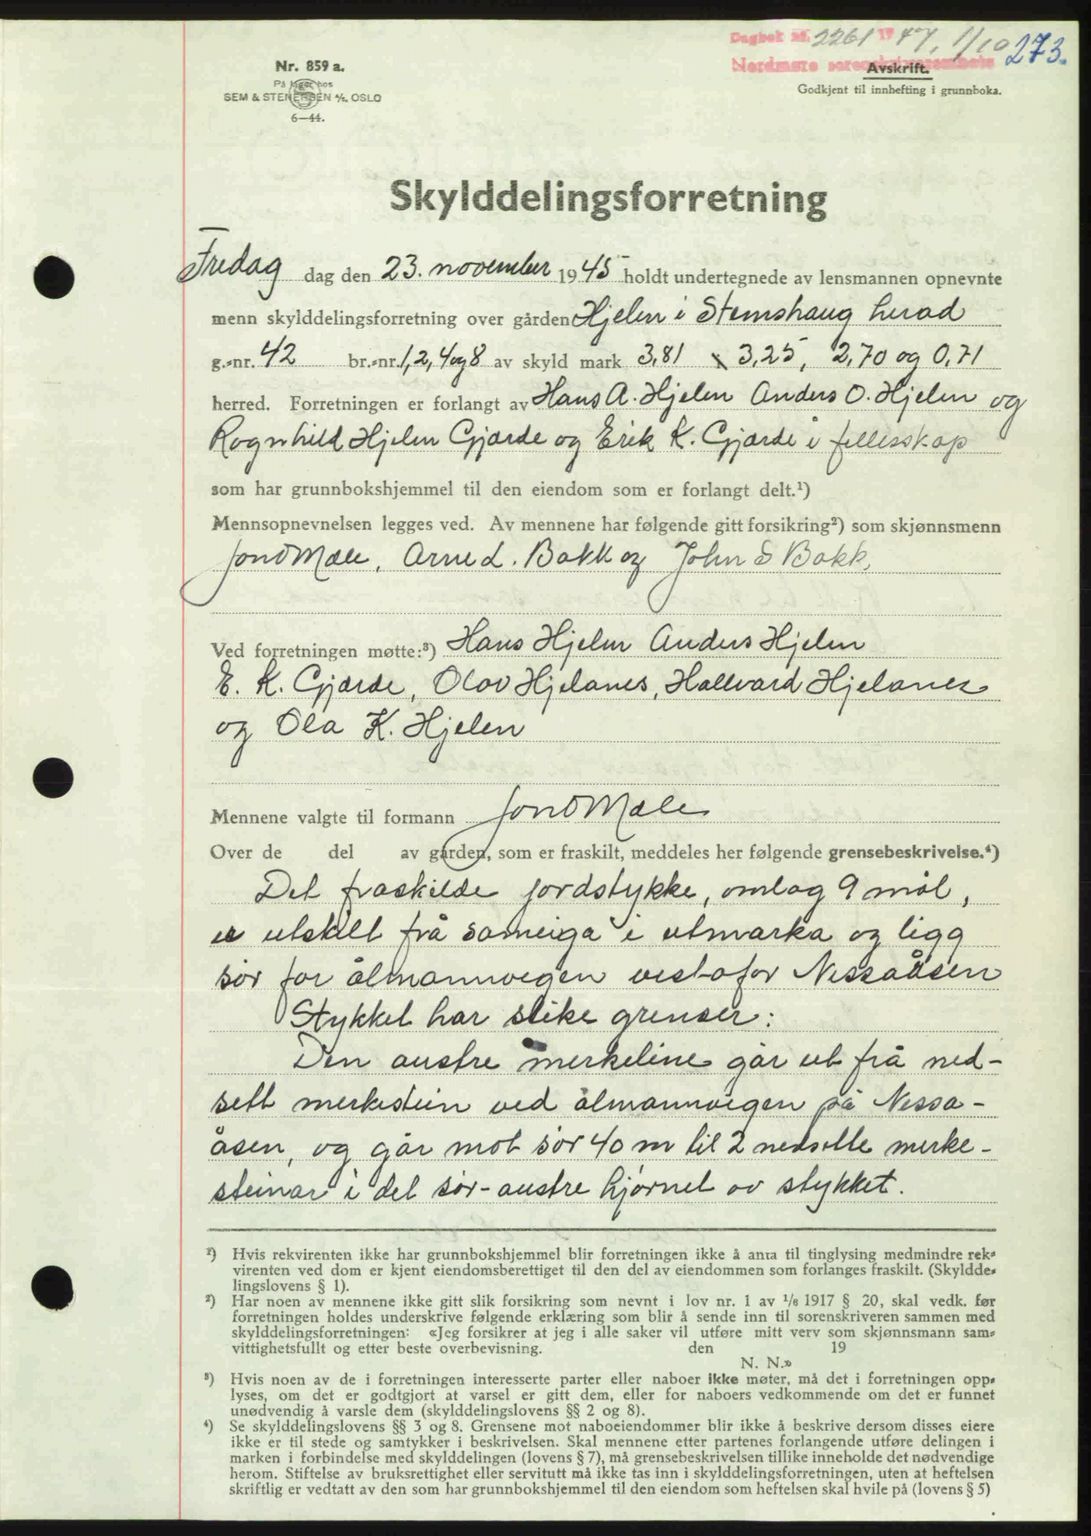 Dagbok nr. 2261 1947, 1/10 273.
Nordmøre sorenskriverembete
Nr. 859 a.
På lager hos
SEM & STENERSEN A/S, OSLO
6—44.
Avskrift.
Godkjent til innhefting i grunnboka.
Skylddelingsforretning
Fredag dag den 23. november 1945 holdt undertegnede av lensmannen opnevnte
menn skylddelingsforretning over gården Hjelen i Stemshaug herad
g.-nr. 42 br.-nr. 1, 2, 4 og 8 av skyld mark 3,81 3,25, 2,70 og 0,71
herred. Forretningen er forlangt av Hans A. Hjelen Anders O. Hjelen og
Ragnhild Hjelen Gjærde og Erik K. Gjærde i fellesskap
som har grunnbokshjemmel til den eiendom som er forlangt delt.¹)
Mennsopnevnelsen legges ved. Av mennene har følgende gitt forsikring²) som skjønnsmenn
Jon O Mæle, Arne L. Bakk og John S Bakk,
Ved forretningen møtte:³) Hans Hjelen Anders Hjelen
E. K. Gjærde, Olav Hjelanes, Hallvard Hjelanes
og Ola K. Hjelen
Mennene valgte til formann Jon O Mæle
Over de del av gården, som er fraskilt, meddeles her følgende grensebeskrivelse.⁴)
Det fraskilde jordstykke, omlag 9 mål,
er utskilt frå sameiga i utmarka og ligg
sør for ålmannvegen vestafor Nessaåsen
Stykket har slike grenser:
Den austre merkeline går ut frå ned-
sett merkestein ved ålmannvegen på Nessa-
åsen, og går mot sør 40 m til 2 nedsette merke-
steinar i det sør-austre hjørnet av stykket.
¹) Hvis rekvirenten ikke har grunnbokshjemmel blir forretningen ikke å anta til tinglysing medmindre rek-
virenten ved dom er kjent eiendomsberettiget til den del av eiendommen som forlanges fraskilt. (Skyldde-
lingslovens § 1).
²) Har noen av mennene ikke gitt slik forsikring som nevnt i lov nr. 1 av 1/6 1917 § 20, skal vedk. før
forretningen holdes underskrive følgende erklæring som blir å sende inn til sorenskriveren sammen med
skylddelingsforretningen: «Jeg forsikrer at jeg i alle saker vil utføre mitt verv som skjønnsmann sam-
vittighetsfullt og etter beste overbevisning. den 19
N. N.»
³) Hvis noen av de i forretningen interesserte parter eller naboer ikke møter, må det i forretningen opp-
lyses, om det er godtgjort at varsel er gitt dem, eller for naboers vedkommende om det er funnet
unødvendig å varsle dem (skylddelingslovens §§ 2 og 8).
⁴) Se skylddelingslovens §§ 3 og 8. Grensene mot naboeiendommer blir ikke å beskrive dersom disses eiere
ikke er til stede og samtykker i beskrivelsen. Skal mennene etter partenes forlangende utføre delingen i
marken i forbindelse med skylddelingen (lovens § 7), må grensebeskrivelsen tillike inneholde det nødvendige
herom. Stiftelse av bruksrettighet eller servitutt må ikke tas inn i skylddelingsforretningen, uten at heftelsen
skriftlig er vedtatt av den som har grunnbokshjemmel til den eiendom som heftelsen skal hvile på (lovens § 5)